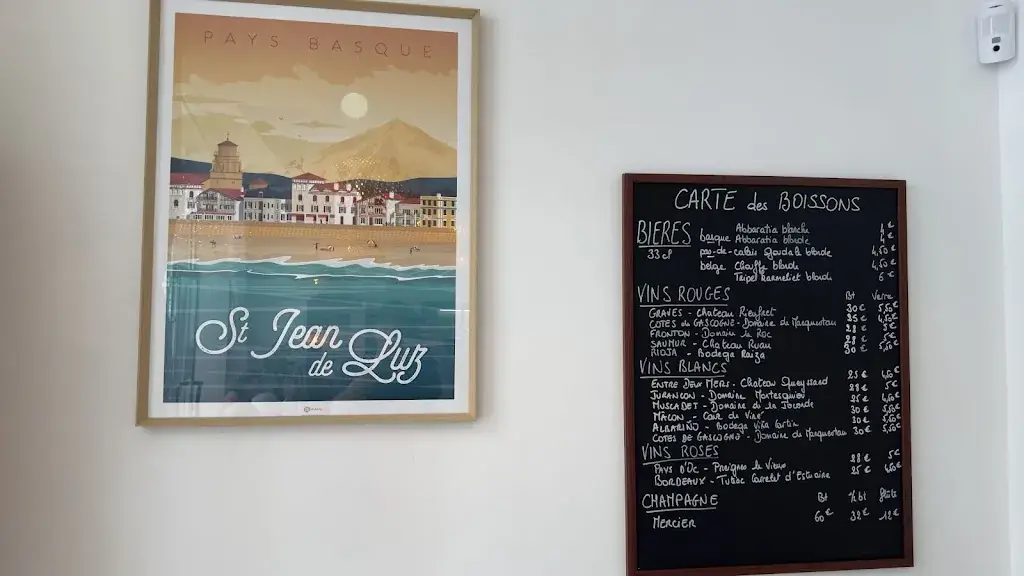 PAYS BASQUE
St Jean
de Luz
CARTE des BOISSONS
BIERES basque Abbaratia blanche 4€
33 cl Abbaratia blonde 4€
pas-de-calais Goudale blonde 4,50€
belge Chouffe blonde 4,50€
Tripel Karmeliet blonde 6€
VINS ROUGES Bt Verre
GRAVES - Chateau 30€ 5,50€
COTES de GASCOGNE - Domaine de 25€ 4,50€
FRONTON - Domaine le Roc 28€ 5€
SAUMUR - Chateau 28€ 5€
RIOJA - Bodega 30€ 5,50€
VINS BLANCS
ENTRE DEUX MERS - Chateau 25€ 4,50€
JURANCON - Domaine Montesquiou 28€ 5€
MUSCADET - Domaine de la 25€ 4,50€
MACON - 30€ 5,50€
ALBARIÑO - Bodega Viña 30€ 5,50€
COTES DE GASCOGNE - Domaine de 30€ 5,50€
VINS ROSES
PAYS D'OC - le Vieux 28€ 5€
BORDEAUX - Carrelet d'Estuaire 25€ 4,50€
CHAMPAGNE Bt ½ bt flûte
MERCIER 60€ 32€ 12€